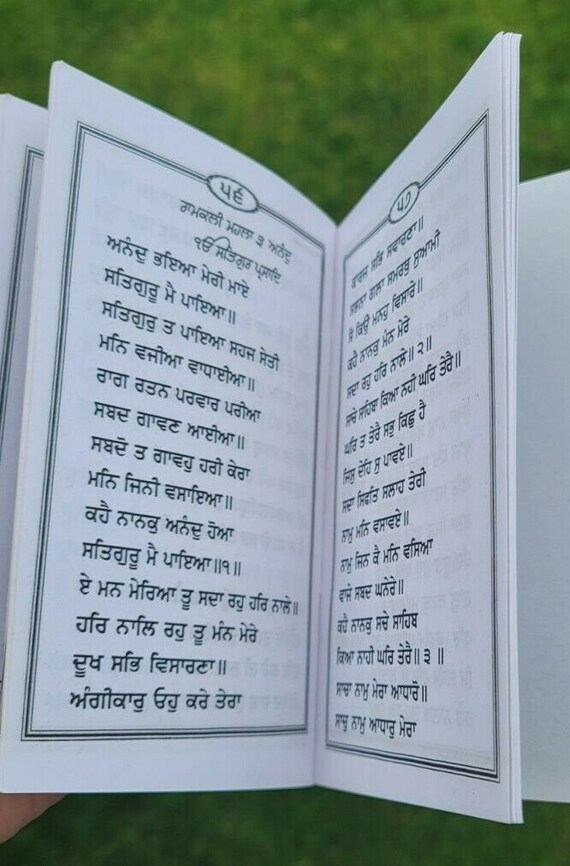 ੫੬
ਰਾਮਕਲੀ ਮਹਲਾ ੩ ਅਨੰਦੁ
ੴ ਸਤਿਗੁਰ ਪ੍ਰਸਾਦਿ
ਅਨੰਦੁ ਭਇਆ ਮੇਰੀ ਮਾਏ
ਸਤਿਗੁਰੂ ਮੈ ਪਾਇਆ॥
ਸਤਿਗੁਰੁ ਤ ਪਾਇਆ ਸਹਜ ਸੇਤੀ
ਮਨਿ ਵਜੀਆ ਵਾਧਾਈਆ॥
ਰਾਗ ਰਤਨ ਪਰਵਾਰ ਪਰੀਆ
ਸਬਦ ਗਾਵਣ ਆਈਆ॥
ਸਬਦੋ ਤ ਗਾਵਹੁ ਹਰੀ ਕੇਰਾ
ਮਨਿ ਜਿਨੀ ਵਸਾਇਆ॥
ਕਹੈ ਨਾਨਕੁ ਅਨੰਦੁ ਹੋਆ
ਸਤਿਗੁਰੂ ਮੈ ਪਾਇਆ॥੧॥
ਏ ਮਨ ਮੇਰਿਆ ਤੂ ਸਦਾ ਰਹੁ ਹਰਿ ਨਾਲੇ॥
ਹਰਿ ਨਾਲਿ ਰਹੁ ਤੂ ਮੰਨ ਮੇਰੇ
ਦੂਖ ਸਭਿ ਵਿਸਾਰਣਾ॥
ਅੰਗੀਕਾਰੁ ਓਹੁ ਕਰੇ ਤੇਰਾ
੫੭
ਕਾਰਜ ਸਭਿ ਸਵਾਰਣਾ॥
ਸਭਨਾ ਗਲਾ ਸਮਰਥੁ ਸੁਆਮੀ
ਸੋ ਕਿਉ ਮਨਹੁ ਵਿਸਾਰੇ॥
ਕਹੈ ਨਾਨਕੁ ਮੰਨ ਮੇਰੇ
ਸਦਾ ਰਹੁ ਹਰਿ ਨਾਲੇ॥੨॥
ਸਾਚੇ ਸਾਹਿਬਾ ਕਿਆ ਨਹੀ ਘਰਿ ਤੇਰੈ॥
ਘਰਿ ਤ ਤੇਰੈ ਸਭੁ ਕਿਛੁ ਹੈ
ਜਿਸੁ ਦੇਹਿ ਸੁ ਪਾਵਏ॥
ਸਦਾ ਸਿਫਤਿ ਸਲਾਹ ਤੇਰੀ
ਨਾਮੁ ਮਨਿ ਵਸਾਵਏ॥
ਨਾਮੁ ਜਿਨ ਕੈ ਮਨਿ ਵਸਿਆ
ਵਾਜੇ ਸਬਦ ਘਨੇਰੇ॥
ਕਹੈ ਨਾਨਕੁ ਸਚੇ ਸਾਹਿਬ
ਕਿਆ ਨਾਹੀ ਘਰਿ ਤੇਰੈ॥੩॥
ਸਾਚਾ ਨਾਮੁ ਮੇਰਾ ਆਧਾਰੋ॥
ਸਾਚੁ ਨਾਮੁ ਆਧਾਰੁ ਮੇਰਾ